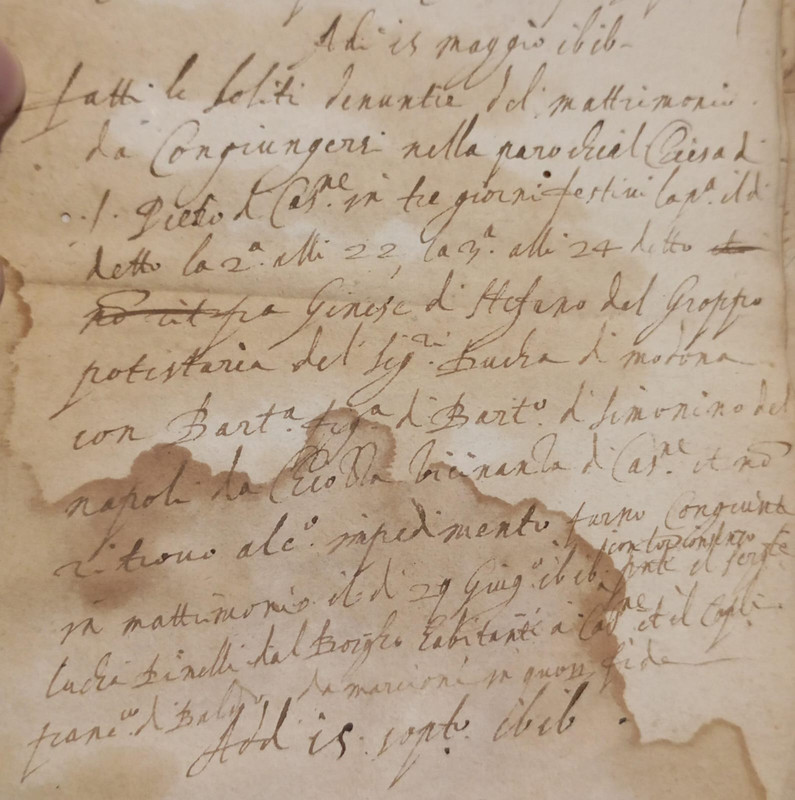 Adi 15 maggio 1616
fatti le soliti denuntie del mattrimonio
da Congiungersi nella parochial Chiesa di
S. Pietro d Cas.ne in tre giorni festivi la p.a il di
detto la 2.a alli 22, la 3.a alli 24 detto
fra Ginese di Stefano del Groppo
potestaria del Sig.r Ducha di modona
con Bart.a fig.a di Bart.o di simonino del
napoli da vicinanza di Cas.ne et nō
ritrovo alc.o impedimento furno Congiunti
in mattrimonio il di 29 Giug.o 1616 il
Lucha Binelli dal Borgho habitanti a Cas.ne et il
franc.o di da marcioni in quor fide
Add 15 sept.o 1616